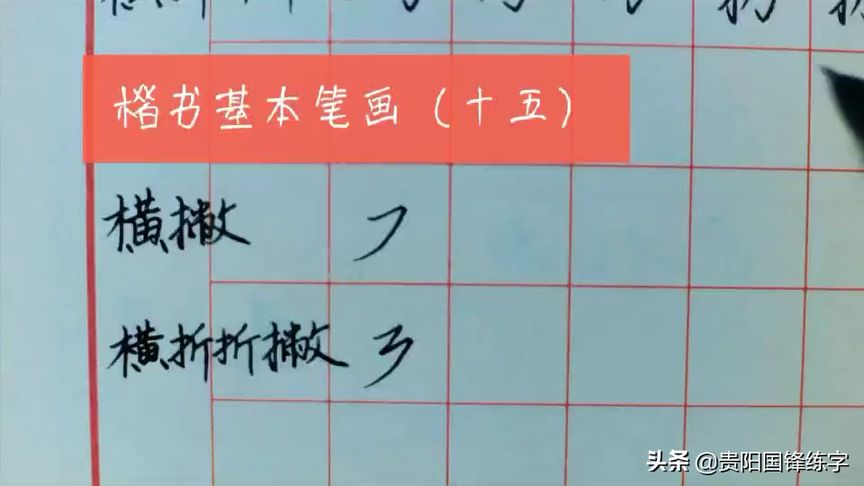 楷书基本笔画（十五）
横撇 ㇇
横折折撇 ㇋
头条 @贵阳国锋练字